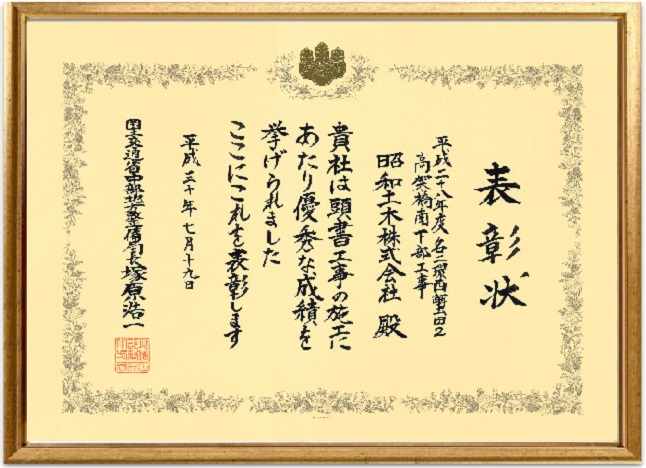 表彰状
平成二十八年度 名二環西蟹田2
高架橋南下部工事
昭和土木株式会社 殿
貴社は頭書工事の施工に
あたり優秀な成績を
挙げられました
ここにこれを表彰します
平成三十年七月十九日
国土交通省中部地方整備局長 塚原浩一